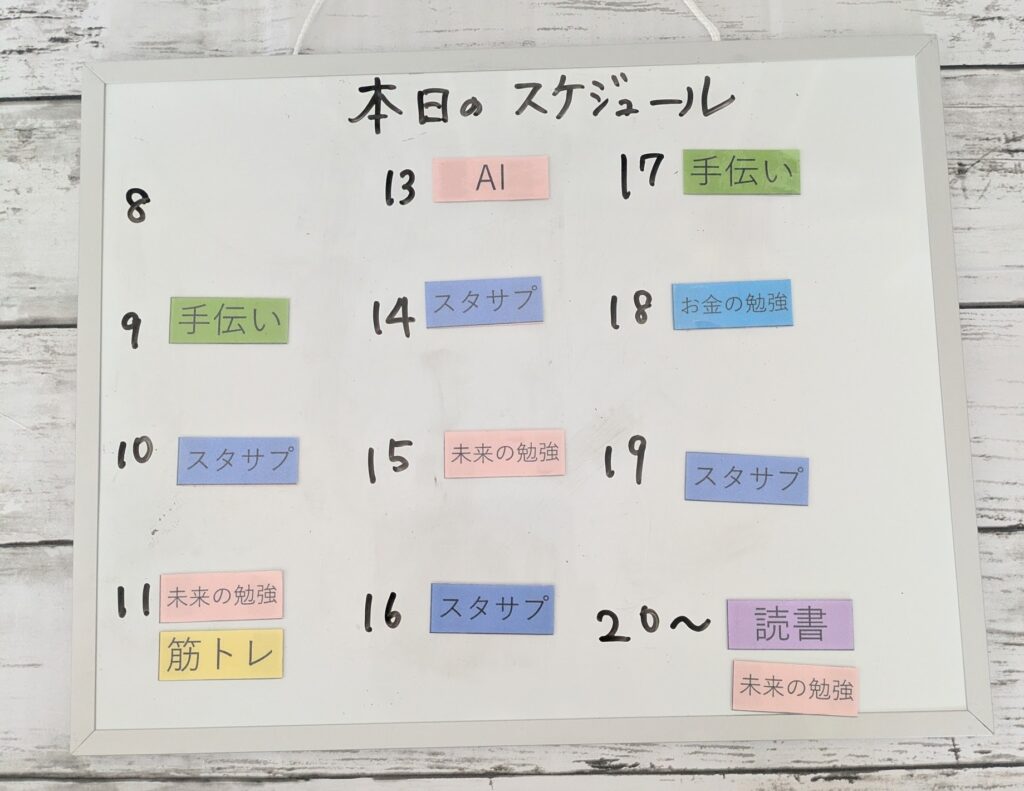 本日のスケジュール
8
9 手伝い
10 スタサプ
11 未来の勉強
筋トレ
13 AI
14 スタサプ
15 未来の勉強
16 スタサプ
17 手伝い
18 お金の勉強
19 スタサプ
20～ 読書
未来の勉強